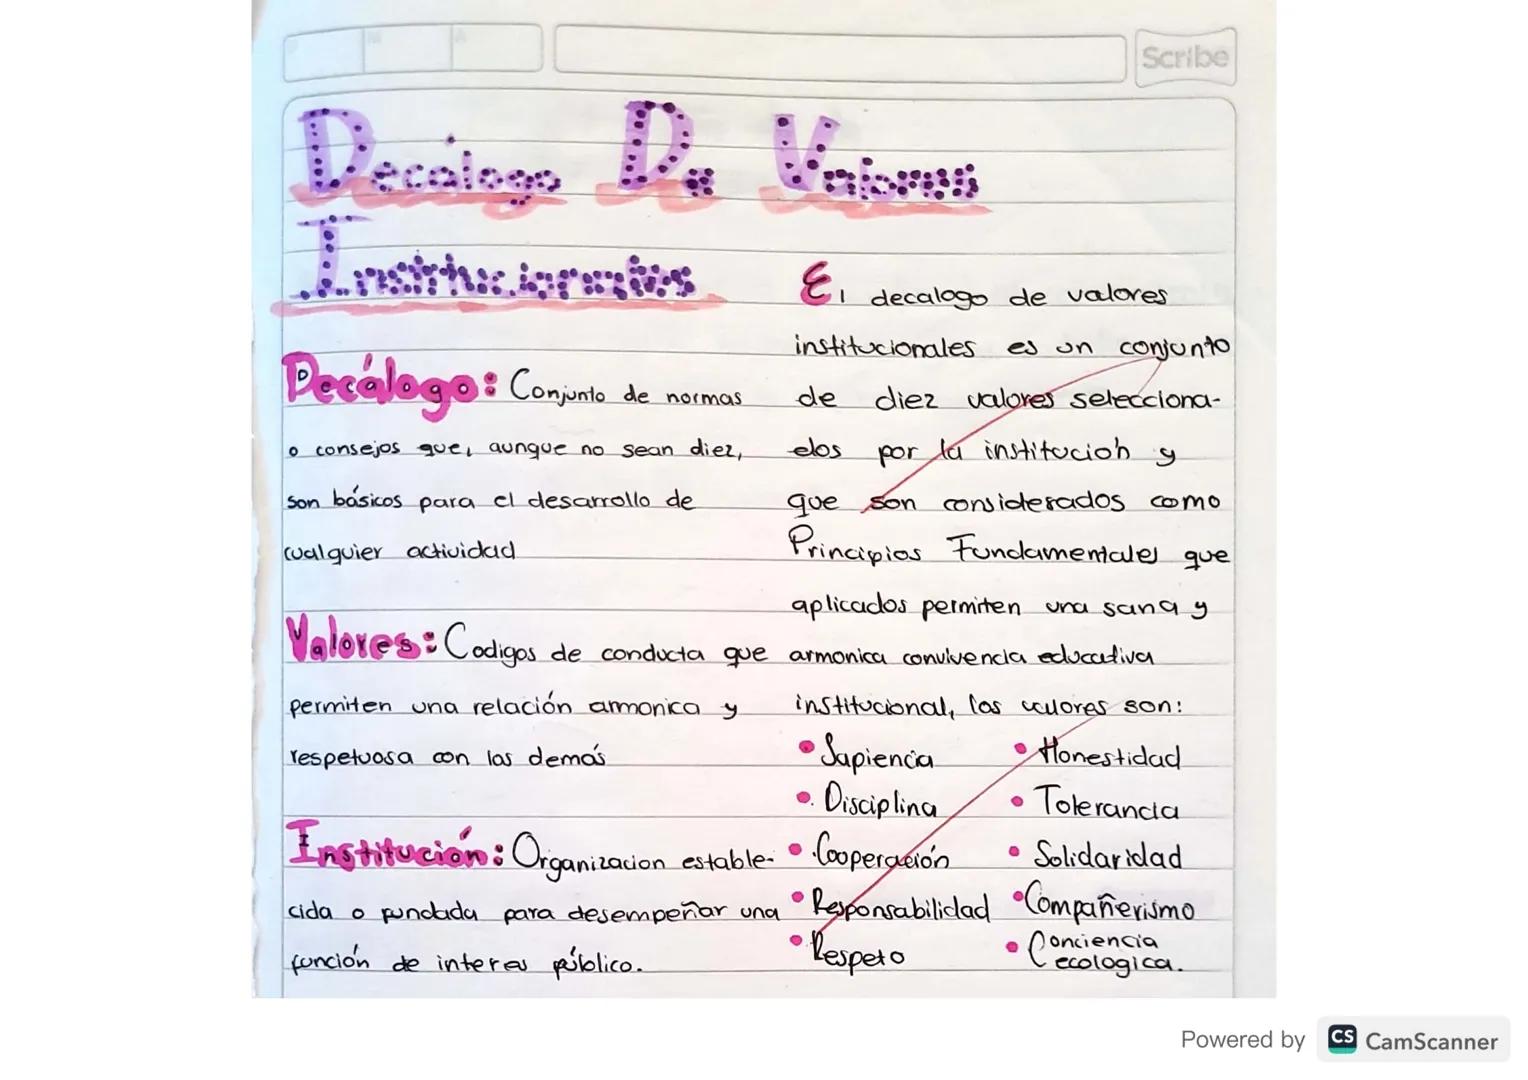 Scribe
Decálogo De Valores
Institucionales
Decálogo: Conjunto de normas
o consejos que, aunque no sean diez,
son básicos para el desarrollo de
cualquier actividad
Valores: Codigos de conducta que
permiten una relación armonica y
respetuosa con los demás
Institución: Organizacion estable-
cida o fundada para desempeñar una
función de interes público.
El decalogo de valores
institucionales es un conjunto
de diez valores selecciona-
dos por la institución y
que son considerados como
Principios Fundamentales que
aplicados permiten una sana y
armonica convivencia educativa
institucional, los valores son:
• Sapiencia
• Disciplina
• Cooperación
• Responsabilidad
• Respeto
• Honestidad
• Tolerancia
• Solidaridad
• Compañerismo
• Conciencia
ecologica.
Powered by CS CamScanner